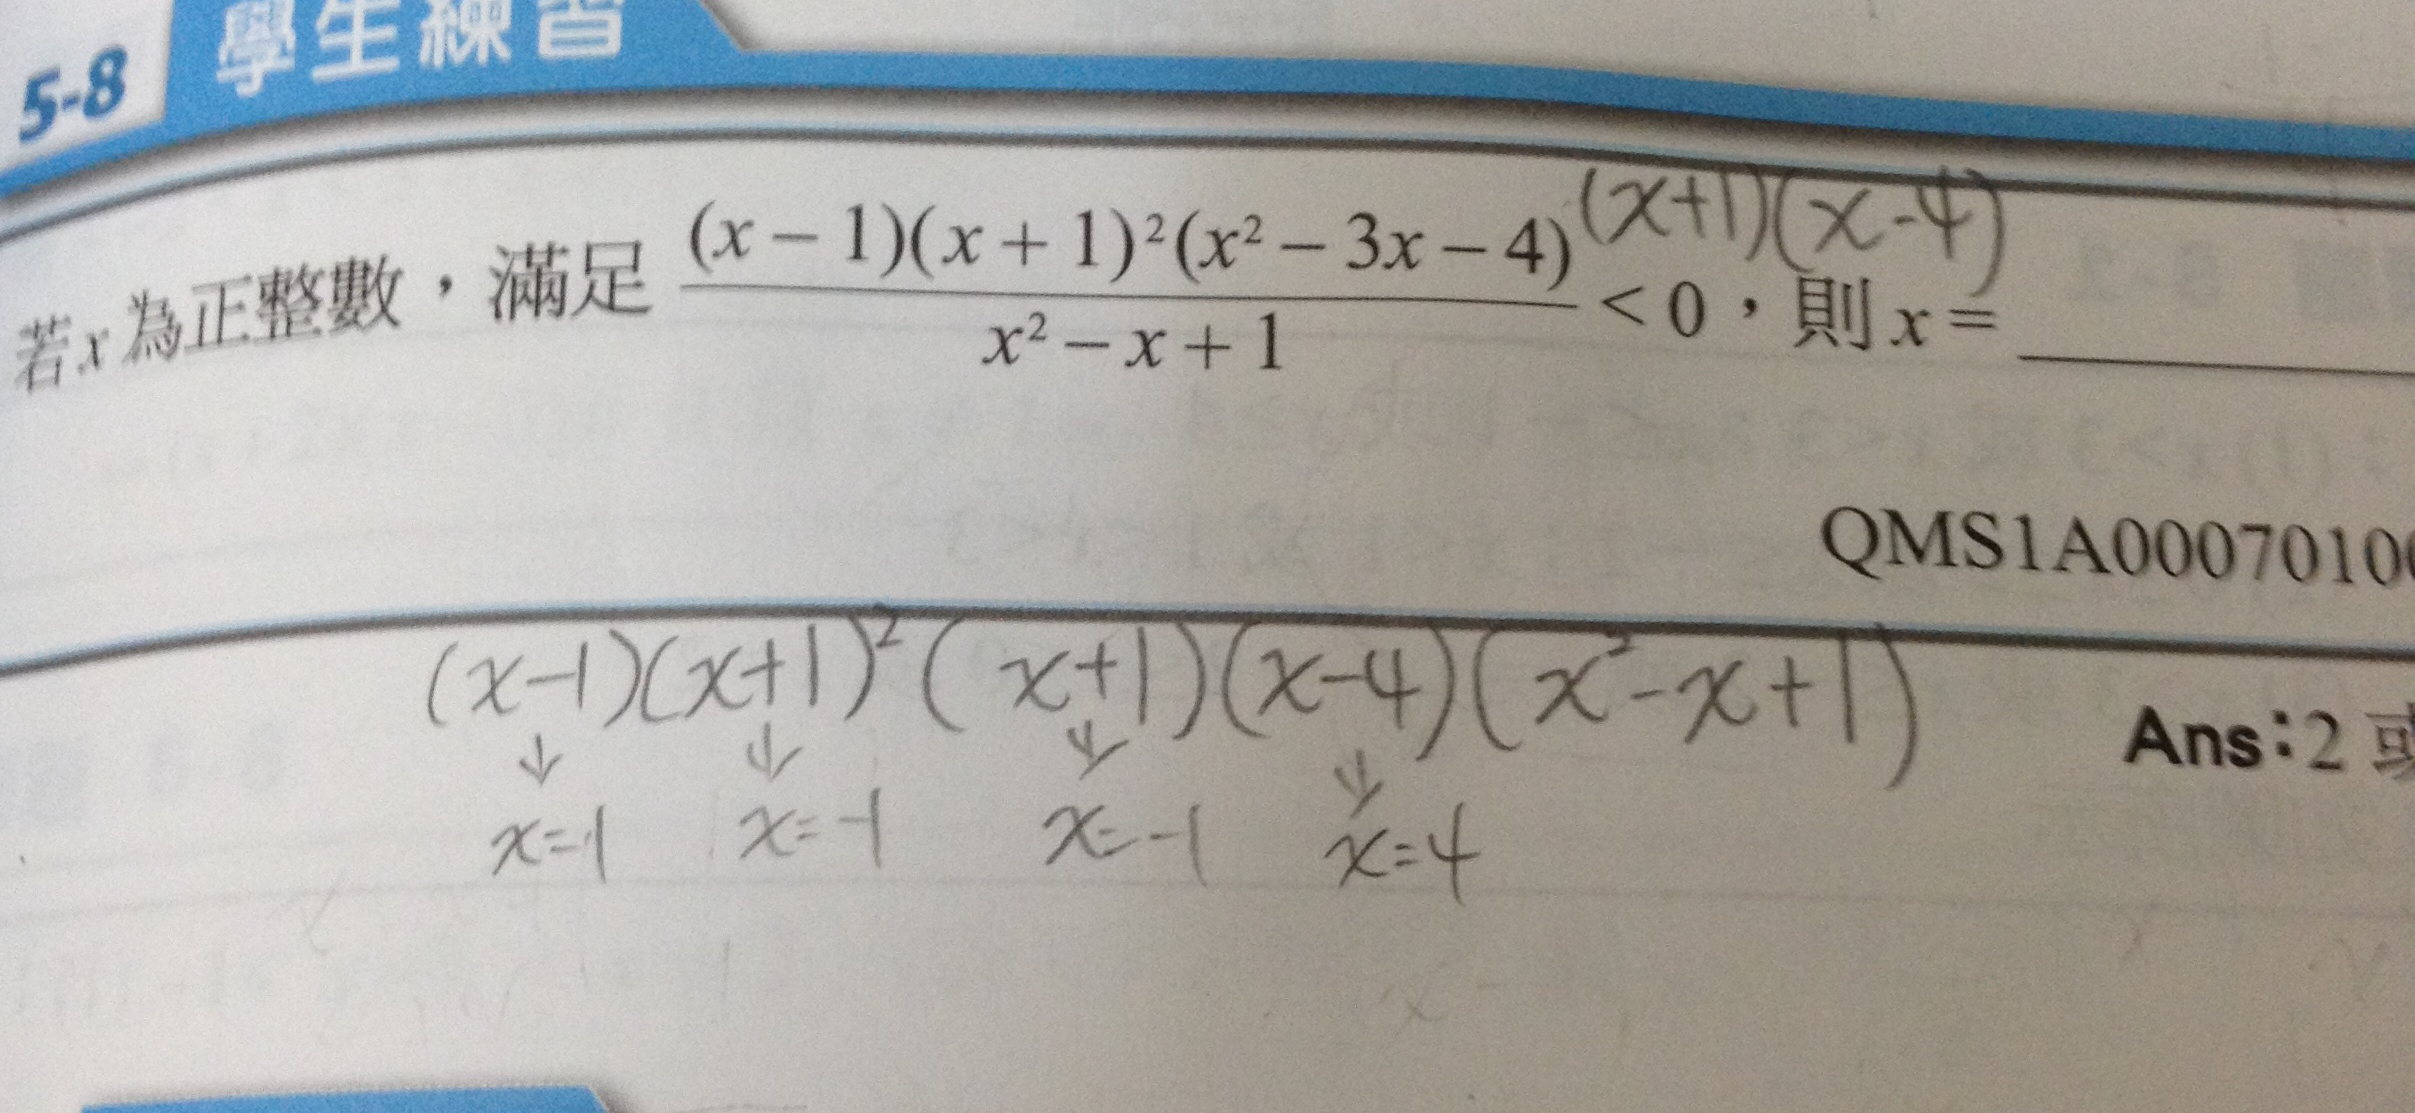 5-8 學生練習
(x+1)(x-4)
若x為正整數,滿足 (x-1)(x+1)²(x²-3x-4) / x²-x+1 <0,則x=
QMS1A00070100
(x-1)(x+1)²(x+1)(x-4)(x²-x+1)
Ans:2 或
↓ ↓ ↓ ↓
x=1 x=-1 x=-1 x=4